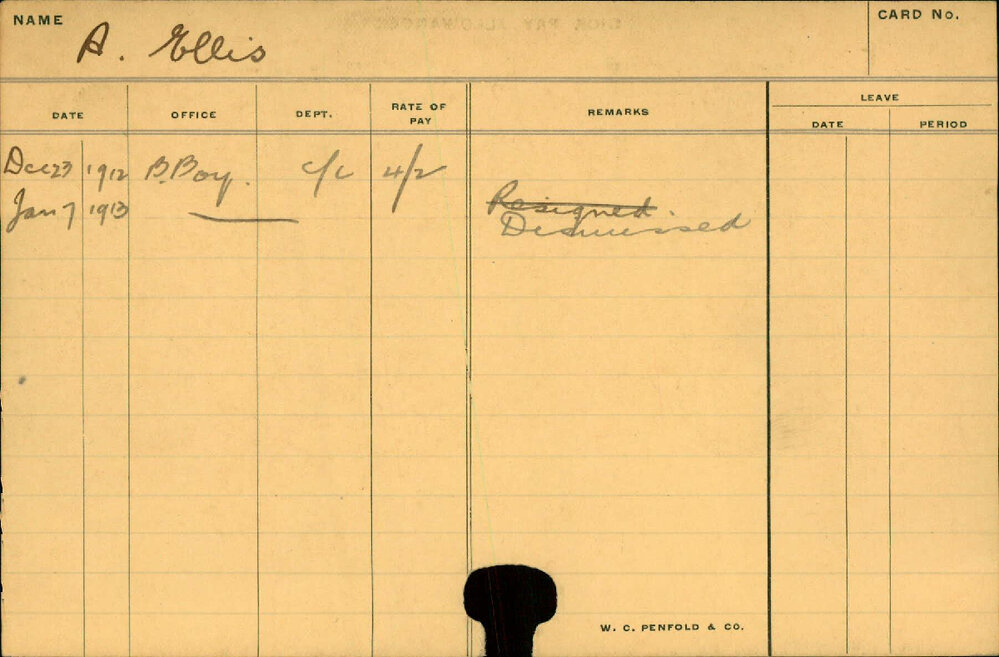 NAME A. Ellis CARD No.
DATE OFFICE DEPT. RATE OF PAY REMARKS LEAVE DATE PERIOD
Dec 23 1912 B. Boy. C/C 4/2
Jan 7 1913 Resigned.
Dismissed
W. C. PENFOLD & CO.